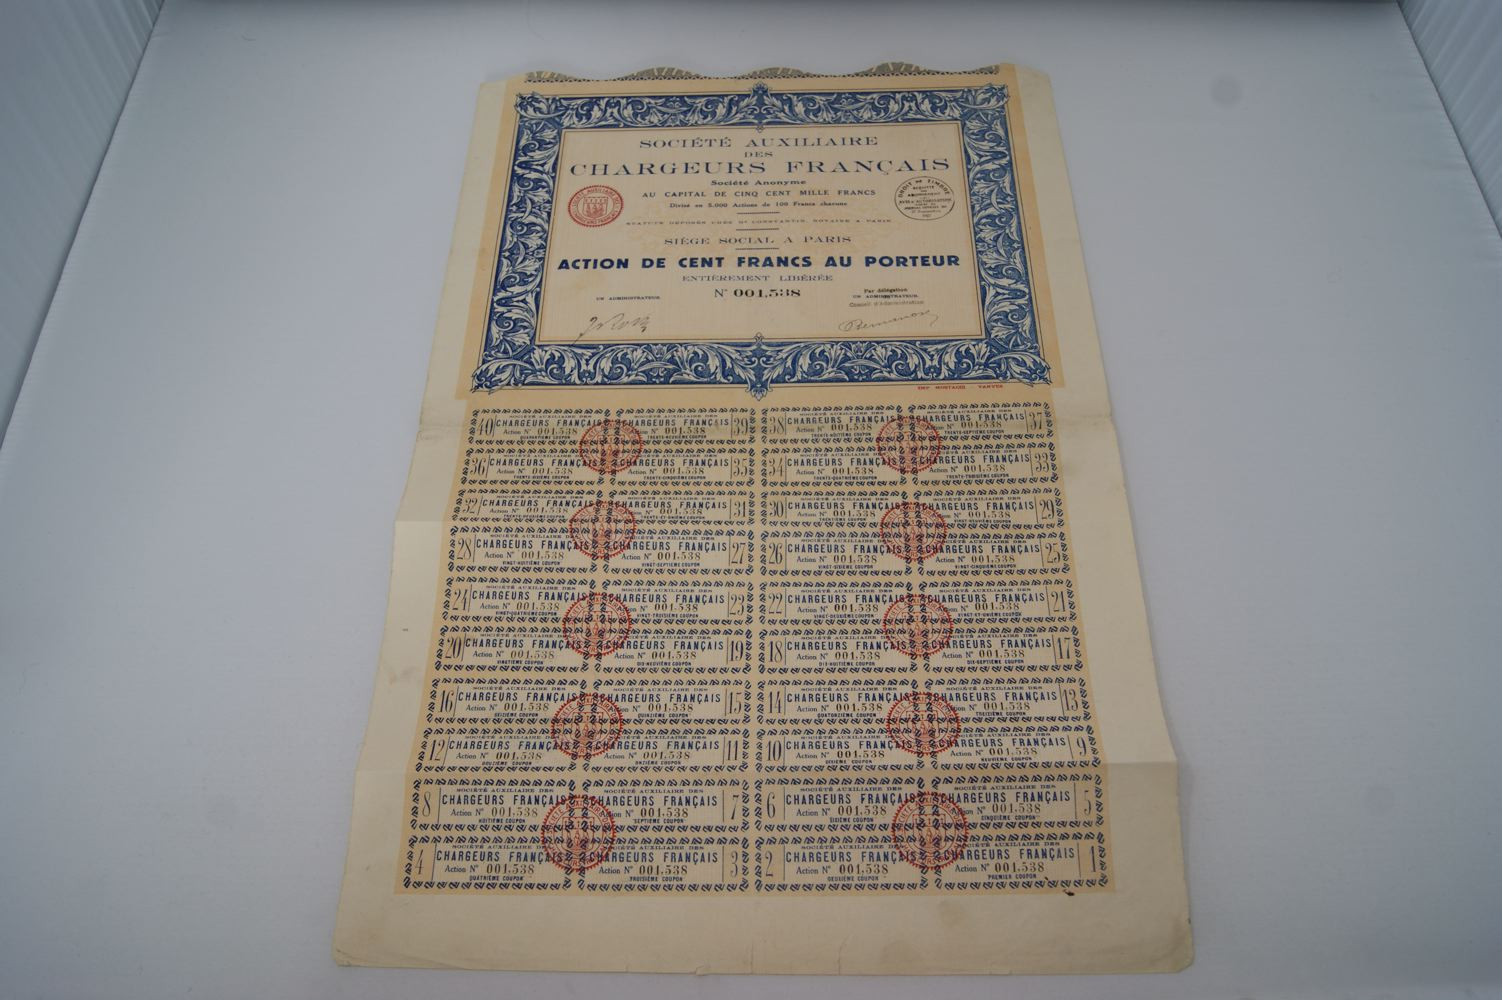 SOCIÉTÉ AUXILIAIRE
DES
CHARGEURS FRANÇAIS
Société Anonyme
AU CAPITAL DE CINQ CENT MILLE FRANCS
Divisé en 5.000 Actions de 100 Francs chacune
STATUTS DÉPOSÉS CHEZ Me CONSTANTIN, NOTAIRE A PARIS
SIÈGE SOCIAL A PARIS
ACTION DE CENT FRANCS AU PORTEUR
ENTIÈREMENT LIBÉRÉE
N° 001,538
UN ADMINISTRATEUR.
Par délégation
UN ADMINISTRATEUR.
Conseil d'Administration
DROIT DE TIMBRE
IMP. VANVES
40 SOCIÉTÉ AUXILIAIRE DES CHARGEURS FRANÇAIS Action N° 001,538 QUARANTIÈME COUPON
SOCIÉTÉ AUXILIAIRE DES CHARGEURS FRANÇAIS Action N° 001,538 TRENTE-NEUVIÈME COUPON 39
38 SOCIÉTÉ AUXILIAIRE DES CHARGEURS FRANÇAIS Action N° 001,538 TRENTE-HUITIÈME COUPON
SOCIÉTÉ AUXILIAIRE DES CHARGEURS FRANÇAIS Action N° 001,538 TRENTE-SEPTIÈME COUPON 37
36 SOCIÉTÉ AUXILIAIRE DES CHARGEURS FRANÇAIS Action N° 001,538 TRENTE-SIXIÈME COUPON
SOCIÉTÉ AUXILIAIRE DES CHARGEURS FRANÇAIS Action N° 001,538 TRENTE-CINQUIÈME COUPON 35
34 SOCIÉTÉ AUXILIAIRE DES CHARGEURS FRANÇAIS Action N° 001,538 TRENTE-QUATRIÈME COUPON
SOCIÉTÉ AUXILIAIRE DES CHARGEURS FRANÇAIS Action N° 001,538 TRENTE-TROISIÈME COUPON 33
32 SOCIÉTÉ AUXILIAIRE DES CHARGEURS FRANÇAIS Action N° 001,538 TRENTE-DEUXIÈME COUPON
SOCIÉTÉ AUXILIAIRE DES CHARGEURS FRANÇAIS Action N° 001,538 TRENTE-ET-UNIÈME COUPON 31
30 SOCIÉTÉ AUXILIAIRE DES CHARGEURS FRANÇAIS Action N° 001,538 TRENTIÈME COUPON
SOCIÉTÉ AUXILIAIRE DES CHARGEURS FRANÇAIS Action N° 001,538 VINGT-NEUVIÈME COUPON 29
28 SOCIÉTÉ AUXILIAIRE DES CHARGEURS FRANÇAIS Action N° 001,538 VINGT-HUITIÈME COUPON
SOCIÉTÉ AUXILIAIRE DES CHARGEURS FRANÇAIS Action N° 001,538 VINGT-SEPTIÈME COUPON 27
26 SOCIÉTÉ AUXILIAIRE DES CHARGEURS FRANÇAIS Action N° 001,538 VINGT-SIXIÈME COUPON
SOCIÉTÉ AUXILIAIRE DES CHARGEURS FRANÇAIS Action N° 001,538 VINGT-CINQUIÈME COUPON 25
24 SOCIÉTÉ AUXILIAIRE DES CHARGEURS FRANÇAIS Action N° 001,538 VINGT-QUATRIÈME COUPON
SOCIÉTÉ AUXILIAIRE DES CHARGEURS FRANÇAIS Action N° 001,538 VINGT-TROISIÈME COUPON 23
22 SOCIÉTÉ AUXILIAIRE DES CHARGEURS FRANÇAIS Action N° 001,538 VINGT-DEUXIÈME COUPON
SOCIÉTÉ AUXILIAIRE DES CHARGEURS FRANÇAIS Action N° 001,538 VINGT-ET-UNIÈME COUPON 21
20 SOCIÉTÉ AUXILIAIRE DES CHARGEURS FRANÇAIS Action N° 001,538 VINGTIÈME COUPON
SOCIÉTÉ AUXILIAIRE DES CHARGEURS FRANÇAIS Action N° 001,538 DIX-NEUVIÈME COUPON 19
18 SOCIÉTÉ AUXILIAIRE DES CHARGEURS FRANÇAIS Action N° 001,538 DIX-HUITIÈME COUPON
SOCIÉTÉ AUXILIAIRE DES CHARGEURS FRANÇAIS Action N° 001,538 DIX-SEPTIÈME COUPON 17
16 SOCIÉTÉ AUXILIAIRE DES CHARGEURS FRANÇAIS Action N° 001,538 SEIZIÈME COUPON
SOCIÉTÉ AUXILIAIRE DES CHARGEURS FRANÇAIS Action N° 001,538 QUINZIÈME COUPON 15
14 SOCIÉTÉ AUXILIAIRE DES CHARGEURS FRANÇAIS Action N° 001,538 QUATORZIÈME COUPON
SOCIÉTÉ AUXILIAIRE DES CHARGEURS FRANÇAIS Action N° 001,538 TREIZIÈME COUPON 13
12 SOCIÉTÉ AUXILIAIRE DES CHARGEURS FRANÇAIS Action N° 001,538 DOUZIÈME COUPON
SOCIÉTÉ AUXILIAIRE DES CHARGEURS FRANÇAIS Action N° 001,538 ONZIÈME COUPON 11
10 SOCIÉTÉ AUXILIAIRE DES CHARGEURS FRANÇAIS Action N° 001,538 DIXIÈME COUPON
SOCIÉTÉ AUXILIAIRE DES CHARGEURS FRANÇAIS Action N° 001,538 NEUVIÈME COUPON 9
8 SOCIÉTÉ AUXILIAIRE DES CHARGEURS FRANÇAIS Action N° 001,538 HUITIÈME COUPON
SOCIÉTÉ AUXILIAIRE DES CHARGEURS FRANÇAIS Action N° 001,538 SEPTIÈME COUPON 7
6 SOCIÉTÉ AUXILIAIRE DES CHARGEURS FRANÇAIS Action N° 001,538 SIXIÈME COUPON
SOCIÉTÉ AUXILIAIRE DES CHARGEURS FRANÇAIS Action N° 001,538 CINQUIÈME COUPON 5
4 SOCIÉTÉ AUXILIAIRE DES CHARGEURS FRANÇAIS Action N° 001,538 QUATRIÈME COUPON
SOCIÉTÉ AUXILIAIRE DES CHARGEURS FRANÇAIS Action N° 001,538 TROISIÈME COUPON 3
2 SOCIÉTÉ AUXILIAIRE DES CHARGEURS FRANÇAIS Action N° 001,538 DEUXIÈME COUPON
SOCIÉTÉ AUXILIAIRE DES CHARGEURS FRANÇAIS Action N° 001,538 PREMIER COUPON 1